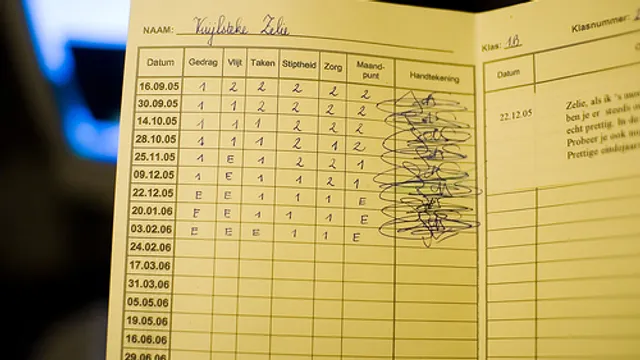 NAAM: Vuijlsteke Zelie
Datum Gedrag Vlijt Taken Stiptheid Zorg Maand-punt Handtekening
16.09.05 1 2 2 2 2 2
30.09.05 1 1 2 2 2 2
14.10.05 1 1 1 2 2 2
28.10.05 1 1 1 2 1 2
25.11.05 1 E 1 2 2 1
09.12.05 1 E 1 1 2 1
22.12.05 E E 1 1 1 E
20.01.06 E E 1 1 1 E
03.02.06 E E E 1 1 E
24.02.06
17.03.06
31.03.06
05.05.06
19.05.06
16.06.06
29.06.06
Klas: 1B Klasnummer:
Datum
22.12.05
Zelie, als ik 's mo
ben je er steeds
echt prettig. In de
Probeer je ook no
Prettige eindejaars